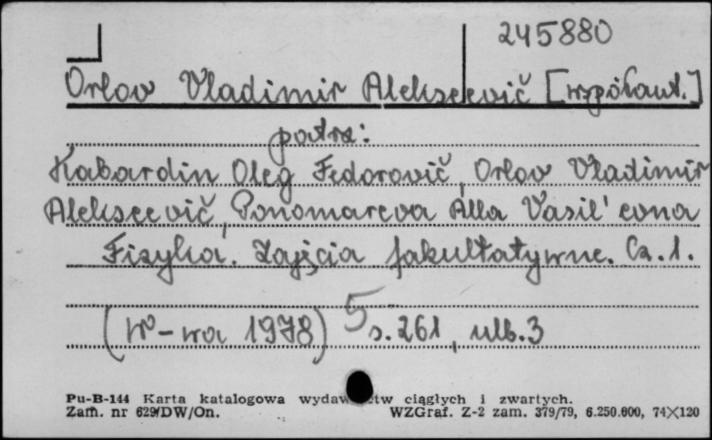 245880
Orlov Vladimir Alekseevič [współaut.]
patrz:
Kabardin Oleg Fedorovič, Orlov Vladimir
Alekseevič, Ponomareva Alla Vasil'evna
Fizyka. Zajęcia fakultatywne. Cz. 1.
(W-wa 1978) 5 s. 261, nlb. 3
Pu-B-144 Karta katalogowa wydaw ctw ciągłych i zwartych.
Zam. nr 629/DW/On. WZGraf. Z-2 zam. 379/79, 6.250.000, 74×120